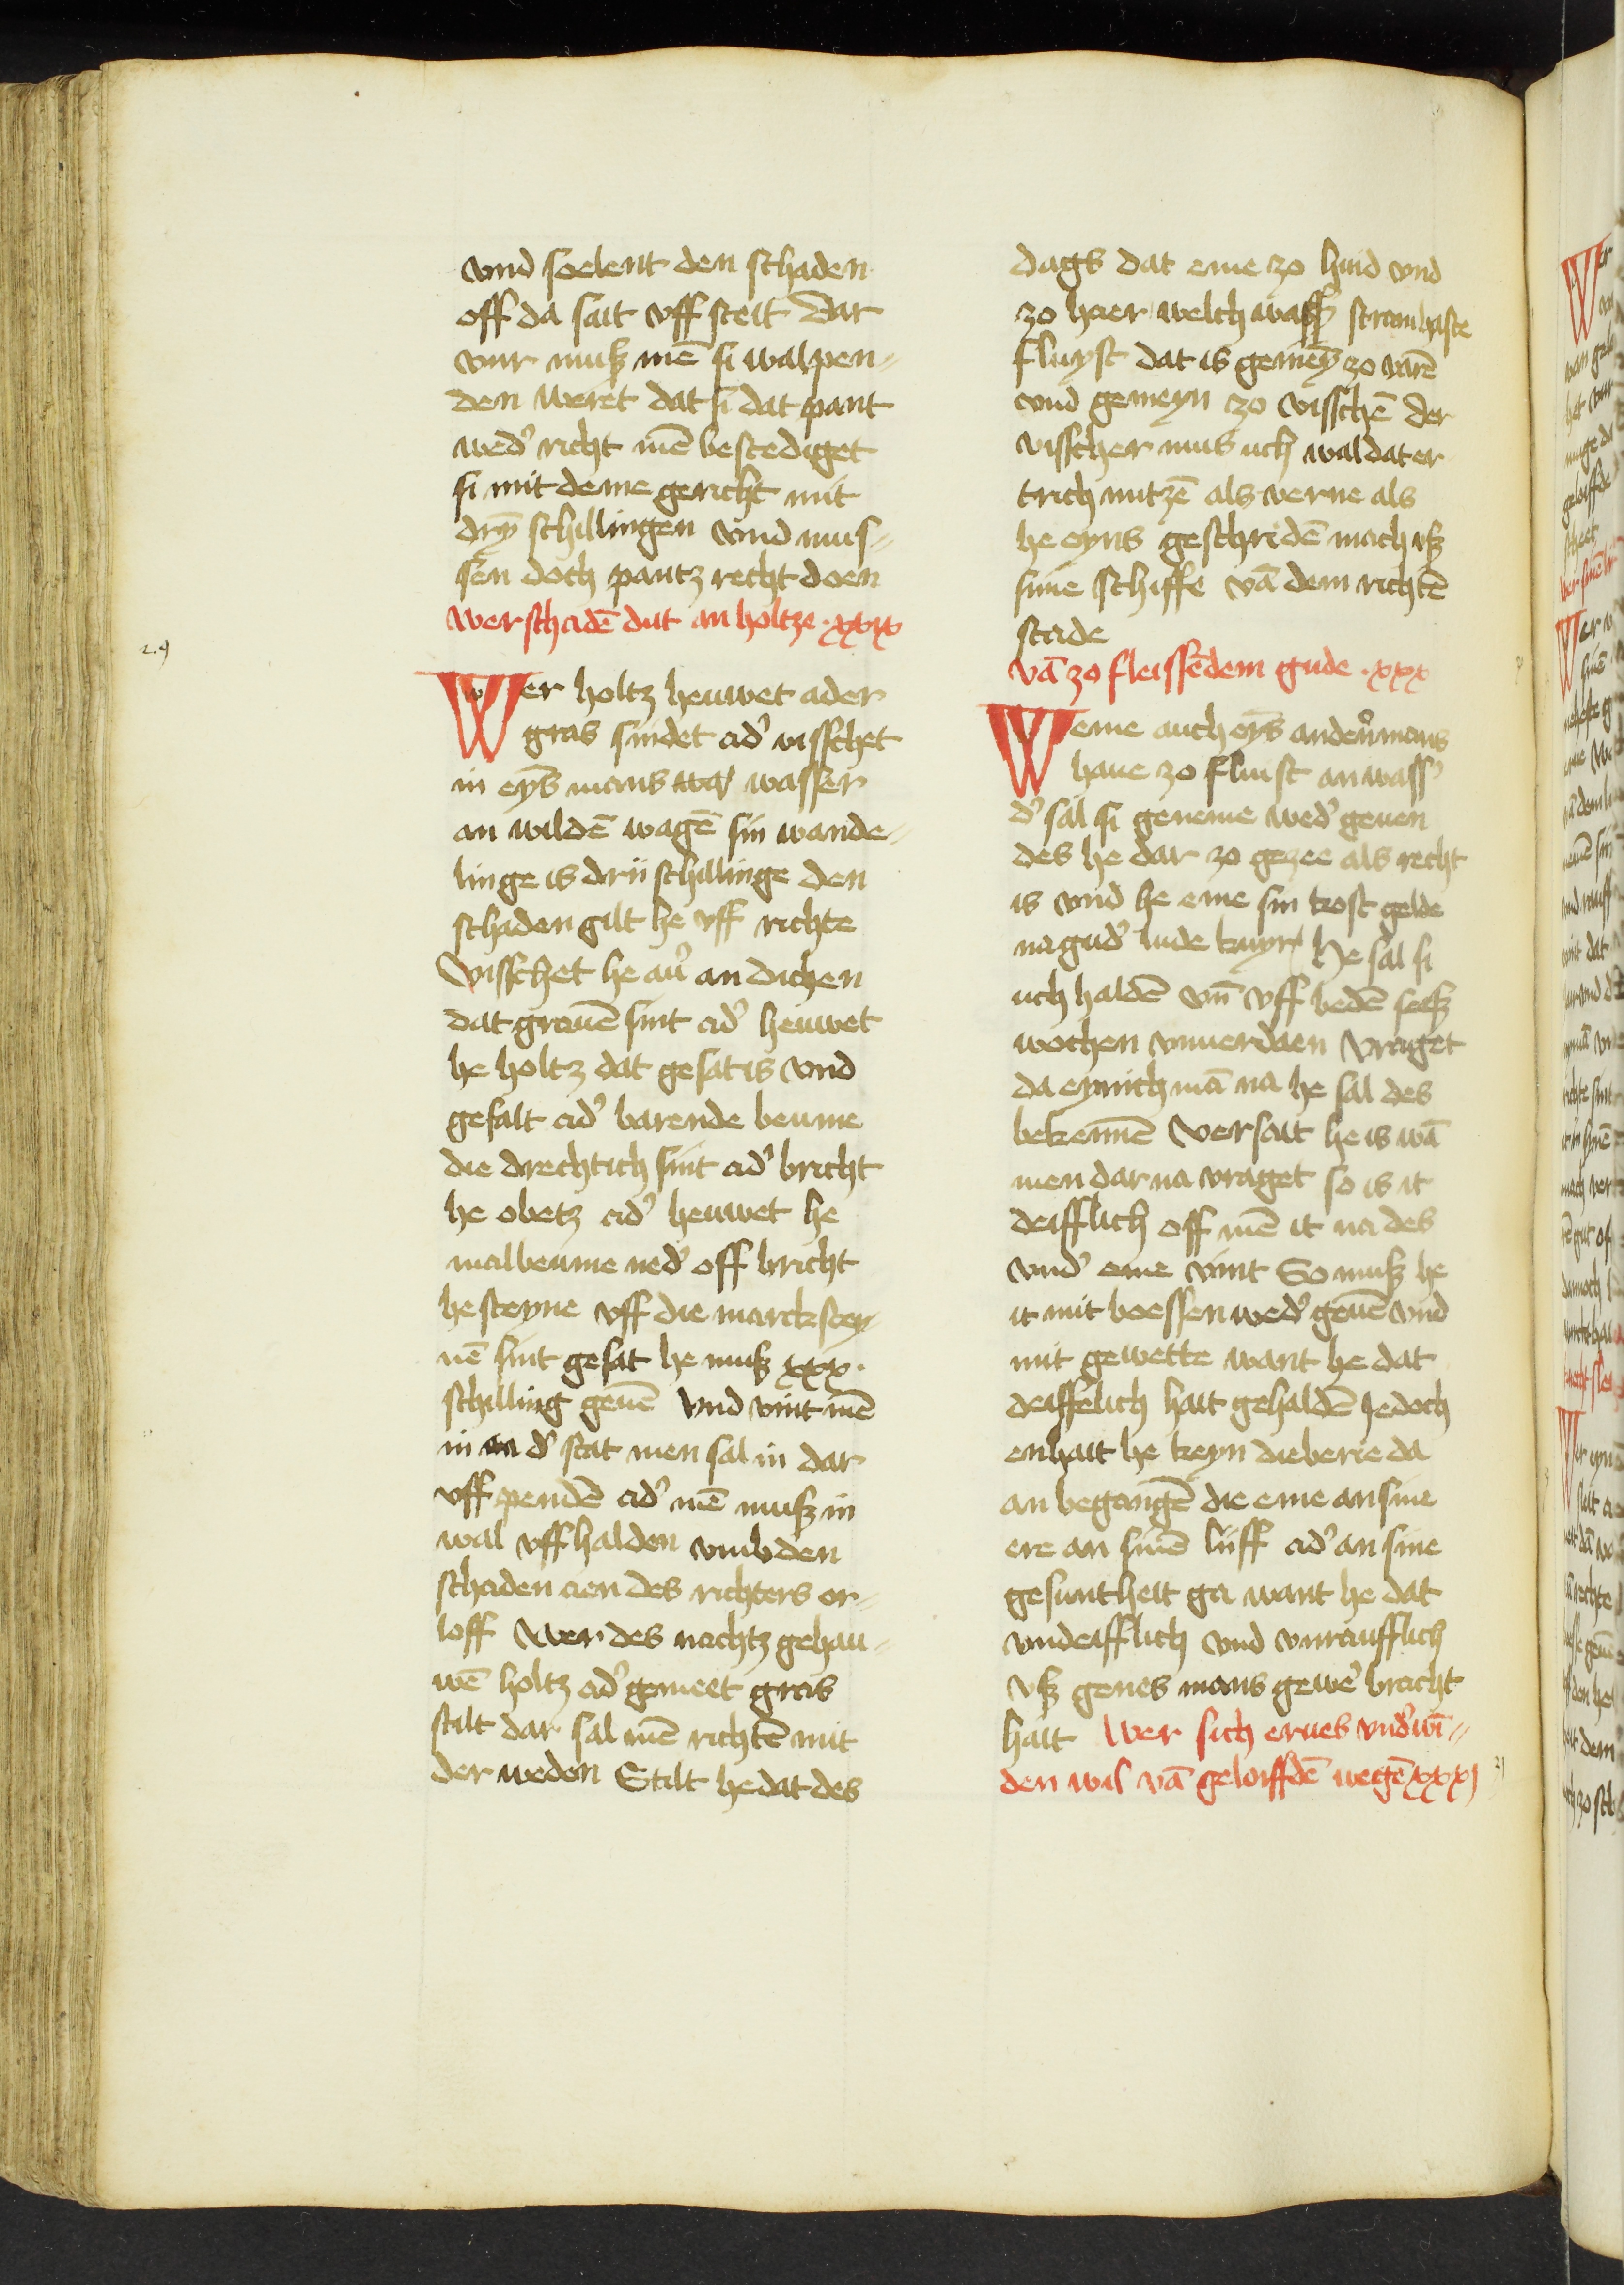 vnd soelent den schaden
off da sait vff steit Dar
vur muß mē si wal pen-
den weret dat sī dat pant
wed' richt mē bestediget
si mit deme gericht mit
drȳ schillingen vnd mus-
sen doch pantz recht doen
wer schadē dut an holtze · xxix
29
Wer holtz heuwet ader
gras sindet ad' visschet
in eyns mans wasser
an wildē wagē sin wande-
linge is drii schillinge den
schaden gilt he vff richte
Visschet he au' an dichen
dat grauē sint ad' heuwet
he holtz dat gesat is vnd
gefalt ad' barende beume
die drechtich sint ad' bricht
he obetz ad' heuwet he
malbeume ned' off bricht
he steyne vff die marckstey
nē sint gesat he muß xxx ·
schilling geuē vnd vint mē
in d' stat men sal in dar
vff pendē ad' mē muß in
wal vff halden vmb den
schaden aen des richters or-
loff Wer des nachtz gehau-
wē holtz ad' gemeet gras
stilt dar sal mē richtē mit
der weden Stilt he dat des
dags dat eme zo huid vnd
zo haer welch wass' stramhaste
fluyst dat is gemeȳ zo varē
vnd gemeyn zo visschē der
visscher mus uch wal dat er
trich nutzē als verne als
he eyns geschridē mach vß
sime schiffe vā dem richtē
stade
vā zo fleissēdem gude · xxx
Weme auch eyns anderꝰ mans
haue zo fluist an wass'
d' sal si geneme wed' geuen
des he dar zo gezee als recht
is vnd he eme sin kost gelde
na gud' lude kuyr He sal si
uch haldē vn̄ vff bedē seeß
wochen vnuerdaen vraget
da eynich mā na he sal des
bekennē versait he is wā
men dar na vraget so is it
deifflich off mē it na des
vnd' eme vint So muß he
it mit boessen wed' geuē vnd
mit gewette want he dat
deiffelich hait gehaldē Jedoch
enhait he keyn dieberie da
an begangē die eme an sine
ere an sinē liiff ad' an sine
gesuntheit ga want he dat
vndeifflich vnd vnraufflich
vß genes mans gewe' bracht
hait Wer sich erues vnd'wī-
den wil vā geloiffdē wegē xxxj
31